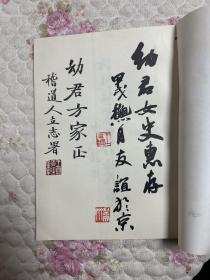 幼君女史惠存
甲戌月友誼於京
幼君方家正
稽道人立志署